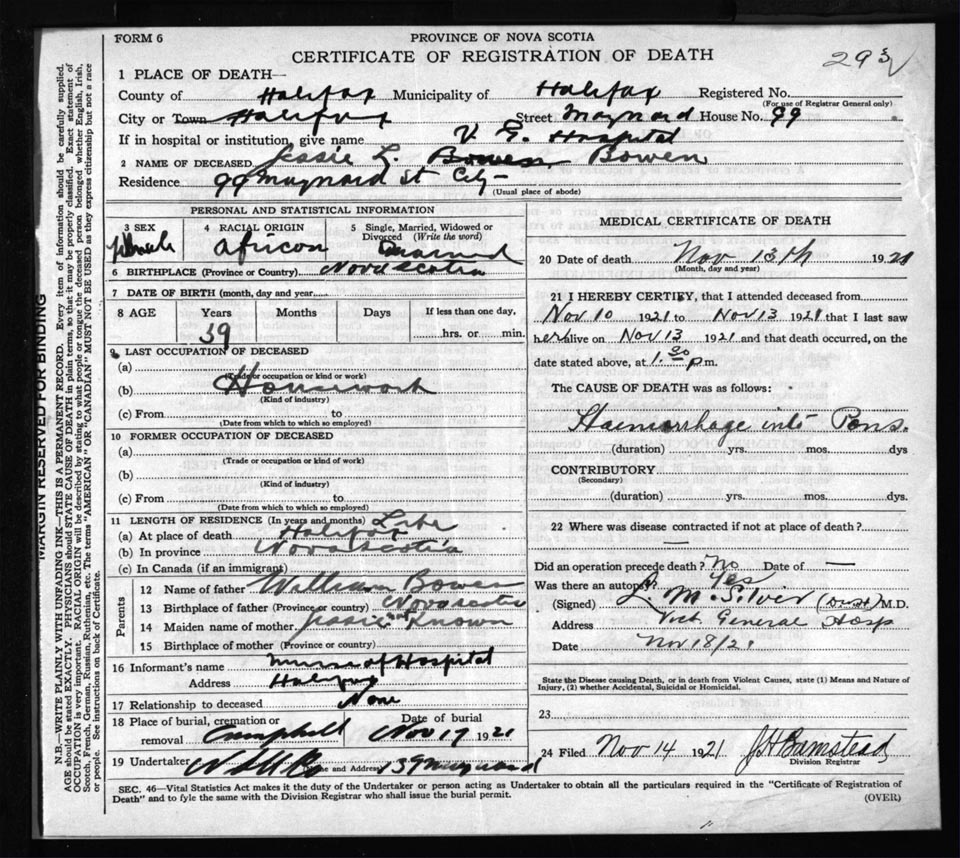 FORM 6
PROVINCE OF NOVA SCOTIA
CERTIFICATE OF REGISTRATION OF DEATH
1 PLACE OF DEATH—
County of Halifax Municipality of Halifax Registered No.
(For use of Registrar General only)
City or Town Halifax Street Maynard House No. 99
If in hospital or institution, give name V. G. Hospital
2 NAME OF DECEASED Jessie L. Bowen Bowen
Residence 99 Maynard St City
(Usual place of abode)
PERSONAL AND STATISTICAL INFORMATION
3 SEX 4 RACIAL ORIGIN 5 Single, Married, Widowed or Divorced (Write the word)
Female African Married
6 BIRTHPLACE (Province or Country) Nova Scotia
7 DATE OF BIRTH (month, day and year)
8 AGE Years Months Days If less than one day,
39 hrs. or min.
9 LAST OCCUPATION OF DECEASED
(a)
(Trade or occupation or kind of work)
(b) Housework
(Kind of industry)
(c) From to
(Date from which to which so employed)
10 FORMER OCCUPATION OF DECEASED
(a)
(Trade or occupation or kind of work)
(b)
(Kind of industry)
(c) From to
(Date from which to which so employed)
11 LENGTH OF RESIDENCE (In years and months) Life
(a) At place of death Halifax
(b) In province Nova Scotia
(c) In Canada (if an immigrant)
Parents
12 Name of father William Bowen
13 Birthplace of father (Province or country) Nova Scotia
14 Maiden name of mother Jessie Known
15 Birthplace of mother (Province or country)
16 Informant's name Nurse of Hospital
Address Halifax
17 Relationship to deceased None
18 Place of burial, cremation or removal Campbell
Date of burial Nov 17 1921
19 Undertaker Name and Address 139 Maynard
MEDICAL CERTIFICATE OF DEATH
20 Date of death Nov 13th 1921
(Month, day and year)
21 I HEREBY CERTIFY, that I attended deceased from
Nov 10 1921 to Nov 13 1921 that I last saw
her alive on Nov 13 1921 and that death occurred, on the
date stated above, at 1.30 p m.
The CAUSE OF DEATH was as follows:
Haemorrhage into Pons.
(duration) yrs. mos. dys
CONTRIBUTORY
(Secondary)
(duration) yrs. mos. dys.
22 Where was disease contracted if not at place of death?
—
Did an operation precede death? No Date of —
Was there an autopsy? Yes
(Signed) L. M. Silver M.D.
Address Vict. General Hosp
Date Nov 18/21
State the Disease causing Death, or in death from Violent Causes, state (1) Means and Nature of
Injury, (2) whether Accidental, Suicidal or Homicidal.
23
24 Filed Nov 14 1921
Division Registrar
SEC. 46—Vital Statistics Act makes it the duty of the Undertaker or person acting as Undertaker to obtain all the particulars required in the "Certificate of Registration of
Death" and to fyle the same with the Division Registrar who shall issue the burial permit.
(OVER)
MARGIN RESERVED FOR BINDING
N.B.—WRITE PLAINLY WITH UNFADING INK—THIS IS A PERMANENT RECORD. Every item of information should be carefully supplied.
AGE should be stated EXACTLY. PHYSICIANS should STATE CAUSE OF DEATH in plain terms, so that it may be properly classified. Exact statement of
OCCUPATION is very important. RACIAL ORIGIN will be described by stating to what people or tongue the deceased person belonged whether English, Irish,
Scotch, French, German, Russian, Ruthenian, etc. The terms "AMERICAN" OR "CANADIAN" MUST NOT BE USED as they express citizenship but not a race
or people. See instructions on back of Certificate.